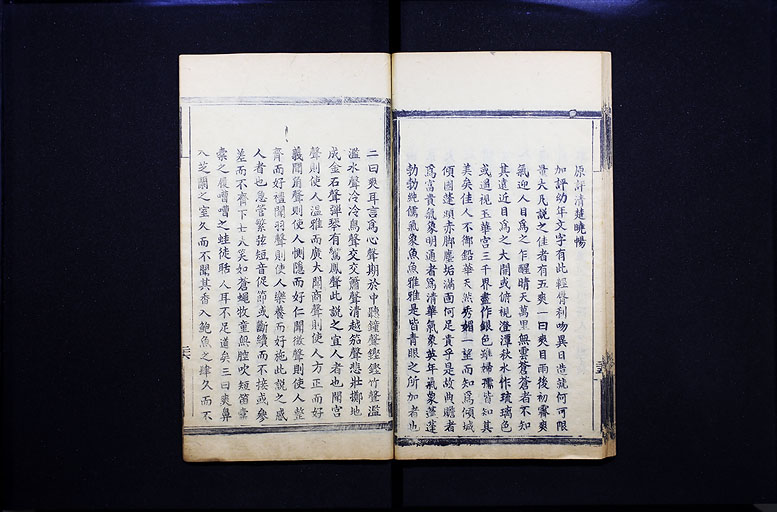 原評清楚曉暢
加評幼年文字有此輕脣利吻異日造就何可限
量大凡說之佳者有五爽一曰爽目雨後初霽爽
氣迎人目爲之乍醒晴天萬里無雲蒼蒼者不知
其遠近目爲之大開或俯視澄潭秋水作琉璃色
或遥視玉華宮三千界盡作銀色雖婦孺皆知其
美矣佳人不御鉛華天然秀媚一望而知爲傾城
傾國蓬頭赤脚塵垢滿面何足貴乎是故典贍者
爲富貴氣象明通者爲清華氣象英年氣象蓬蓬
勃勃純儒氣象魚魚雅雅是皆青眼之所加者也
二曰爽耳言爲心聲期於中聽鐘聲鏗鏗竹聲濫
濫水聲冷冷鳥聲交交簫聲清越笳聲悲壯擲地
成金石聲彈琴有鸞鳳聲此說之宜人者也聞宮
聲則使人溫雅而廣大聞商聲則使人方正而好
義聞角聲則使人惻隱而好仁聞徵聲則使人整
齊而好禮聞羽聲則使人樂養而好施此說之感
人者也急管繁弦短音促節或斷續而不接或參
差而不齊下士入笑如蒼蠅牧童無腔吹短笛橐
橐之履嘈嘈之蛙徒聒人耳不足道矣三曰爽鼻
入芝蘭之室久而不聞其香入鮑魚之肆久而不